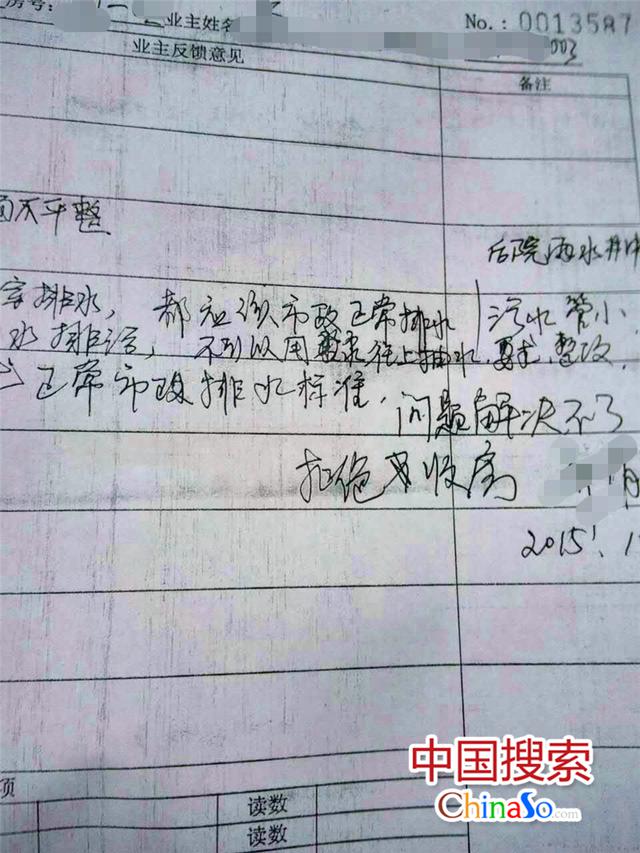 房号: 业主姓名 No.: 0013587
业主反馈意见 备注
面不平整
后院雨水井中
排水, 都应该市政正常排水 污水管小
水排污, 不可以用 往上抽水, 要求整改,
正常市政排水标准, 问题解决不了
拒绝收房
2015.1
项
读数
读数
中国搜索
ChinaSo.com